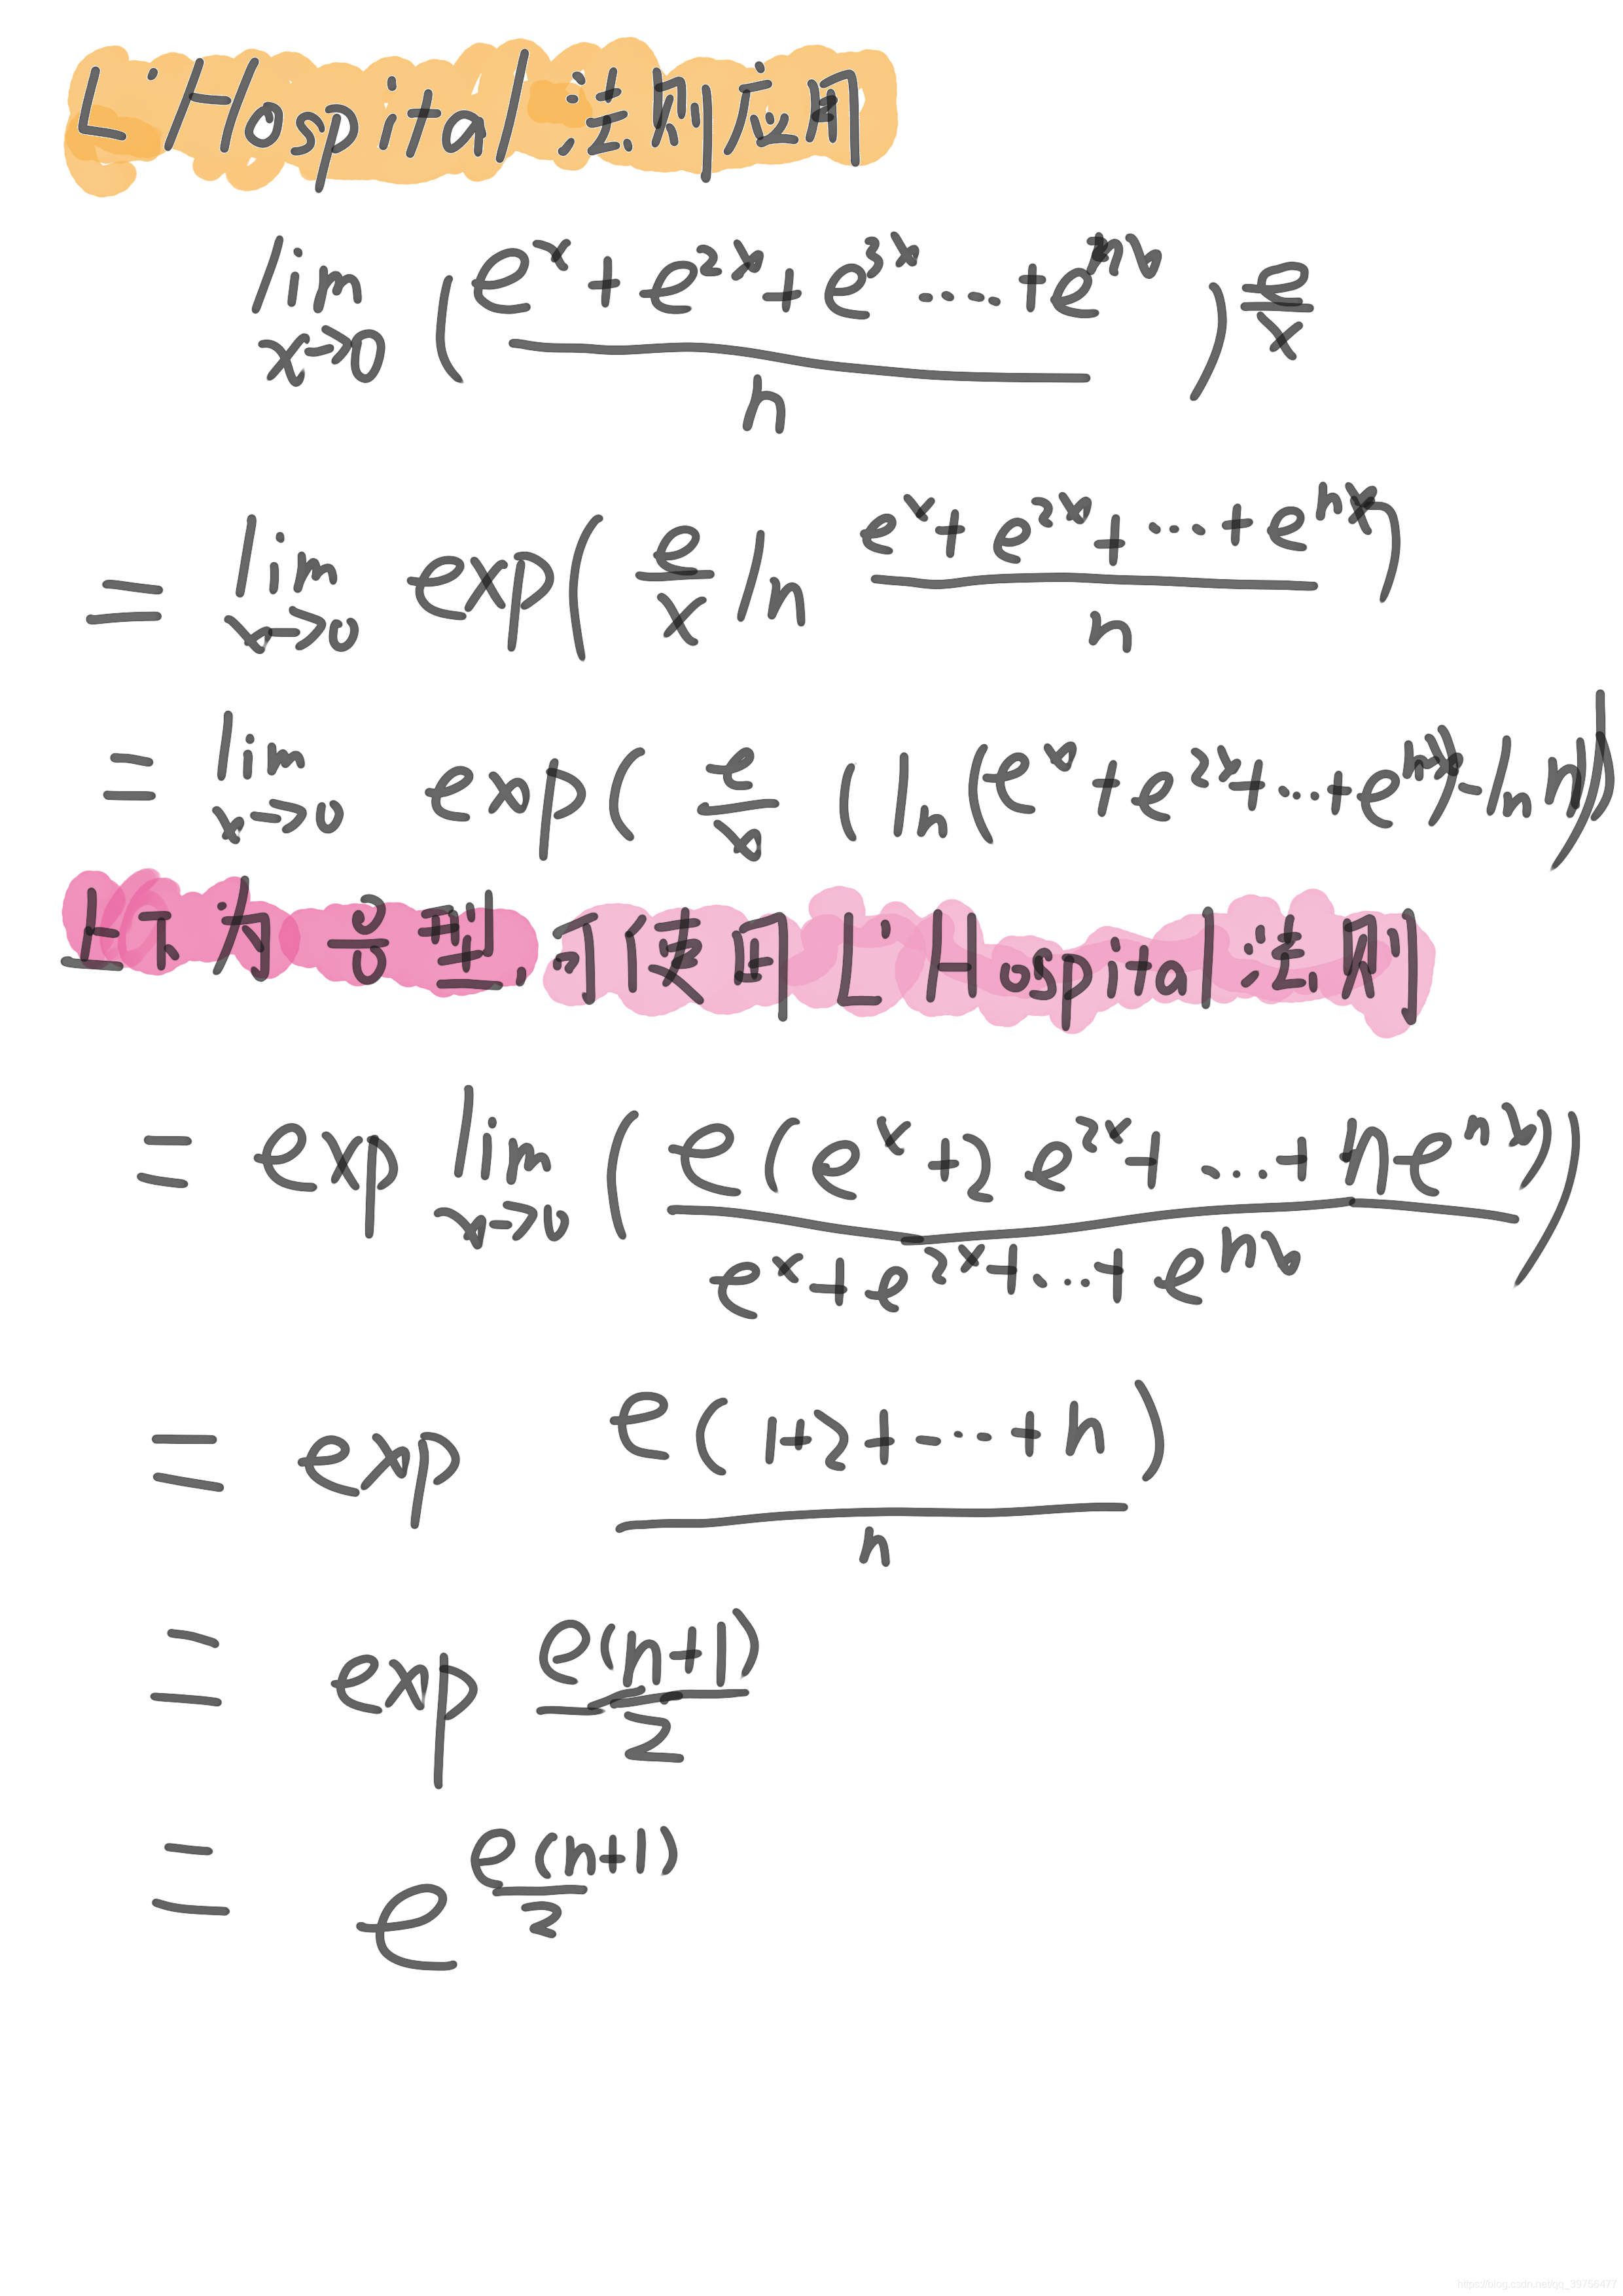 L'Hospital 法则应用
lim_{x→0} ( (e^x + e^{2x} + e^{3x} ..... + e^{nx}) / n )^{e/x}
= lim_{x→0} exp( e/x ln (e^x + e^{2x} + ... + e^{nx}) / n )
= lim_{x→0} exp( e/x ( ln(e^x + e^{2x} + ... + e^{nx}) - ln n ) )
上下为 0/0 型, 可使用 L'Hospital 法则
= exp lim_{x→0} ( e(e^x + 2e^{2x} + ... + ne^{nx}) / (e^x + e^{2x} + ... + e^{nx}) )
= exp e(1+2+ ... +n) / n
= exp e(n+1) / 2
= e^{e(n+1)/2}